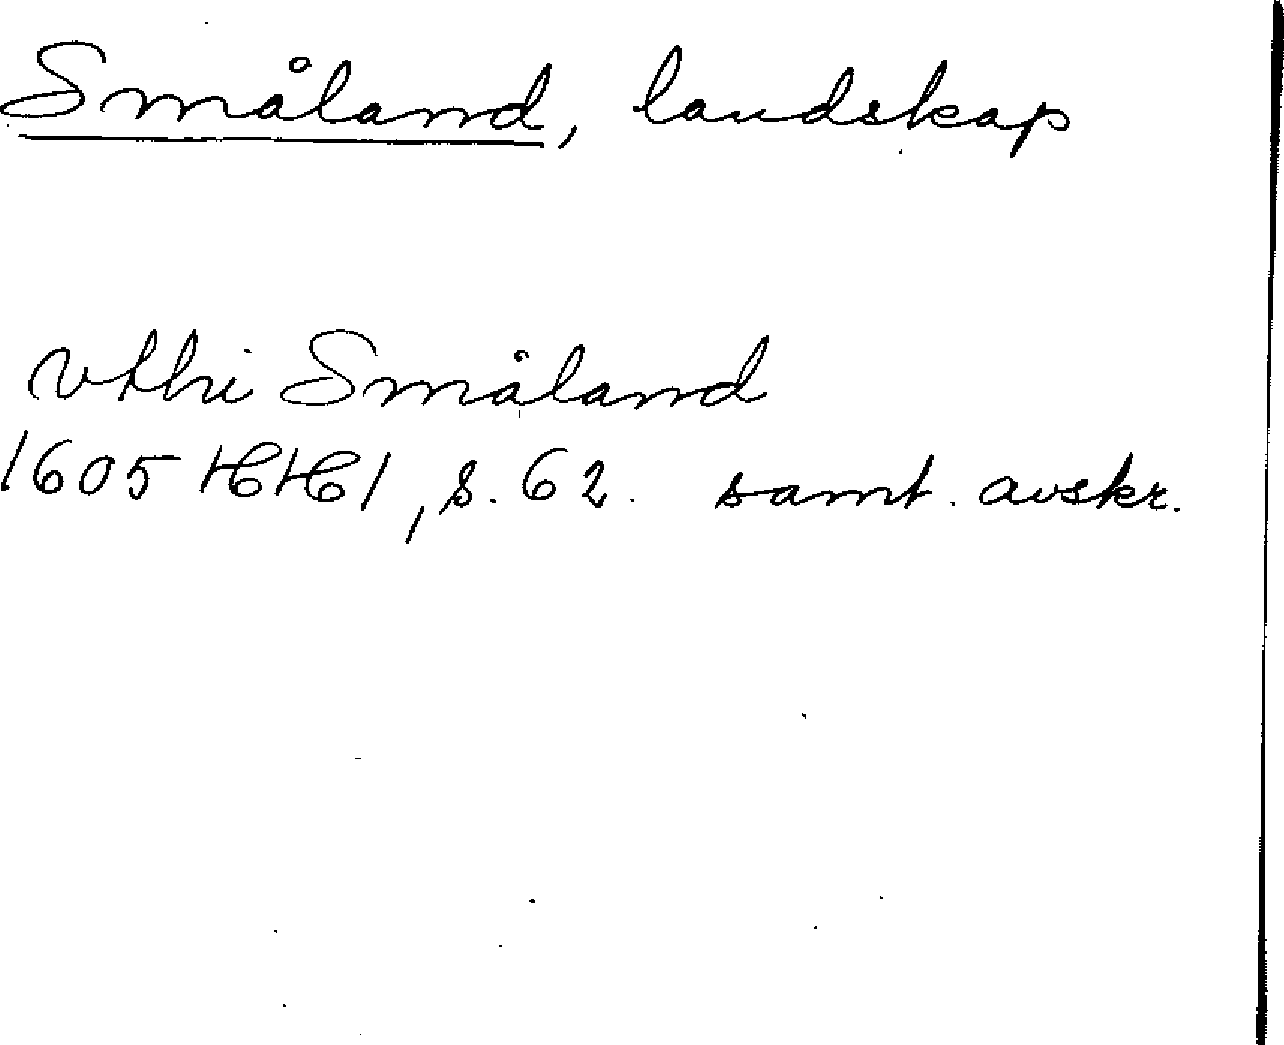 Småland, landskap
vthi Småland
1605 HH1, s. 62. samt. avskr.